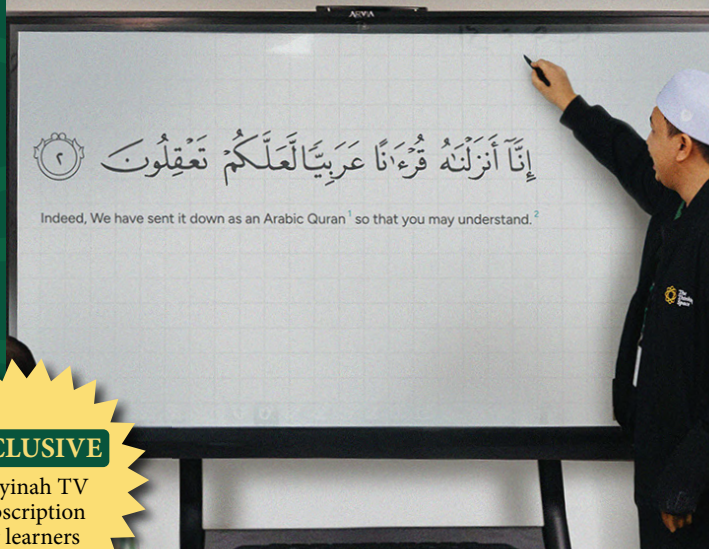 إِنَّآ أَنزَلْنَٰهُ قُرْءَٰنًا عَرَبِيًّا لَّعَلَّكُمْ تَعْقِلُونَ ٢
Indeed, We have sent it down as an Arabic Quran1 so that you may understand.2
The
Thinking
Space
CLUSIVE
yinah TV
oscription
learners